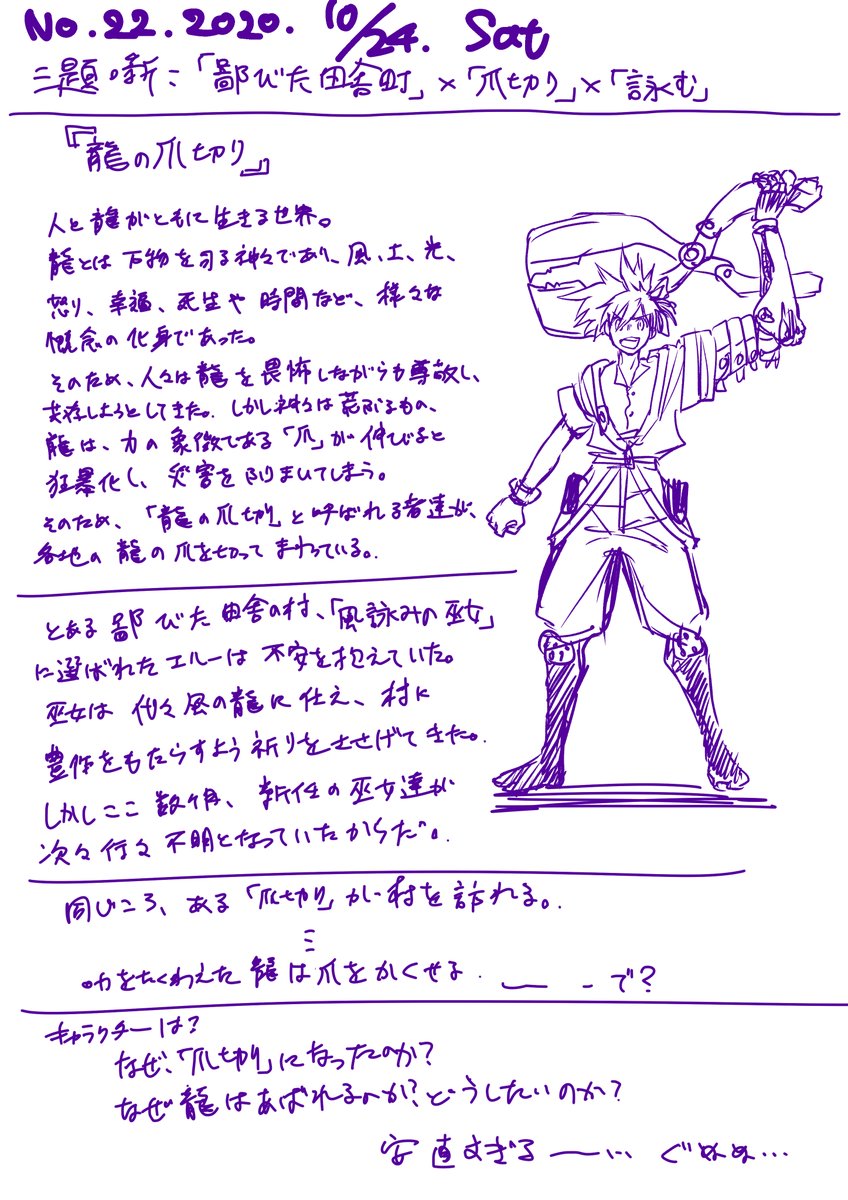 No.22.2020. 10/24. Sat
三題噺:「鄙びた田舎町」×「爪切り」×「詠む」
『龍の爪切り』
人と龍がともに生きる世界。
龍とは万物を司る神々であり、風、土、光、
怒り、幸福、死生や時間など、様々な
概念の化身であった。
そのため、人々は龍を畏怖しながらも尊敬し、
共存しようとしてきた。しかし神々は荒ぶるもの、
龍は、力の象徴である「爪」が伸びると
狂暴化し、災害をふりまいてしまう。
そのため、「龍の爪切り」と呼ばれる者達が、
各地の龍の爪を切ってまわっている。
とある鄙びた田舎の村、「風詠みの巫女」
に選ばれたエルーは不安を抱えていた。
巫女は代々風の龍に仕え、村に
豊作をもたらすよう祈りをささげてきた。
しかしここ数ヶ月、新任の巫女達が
次々行方不明となっていたからだ。
同じころ、ある「爪切り」が村を訪れる。
力をたくわえた龍は爪をかくせる。 で?
キャラクターは?
なぜ、「爪切り」になったのか?
なぜ龍はあばれるのか?どうしたいのか?
安直すぎるー… ぐぬぬ…